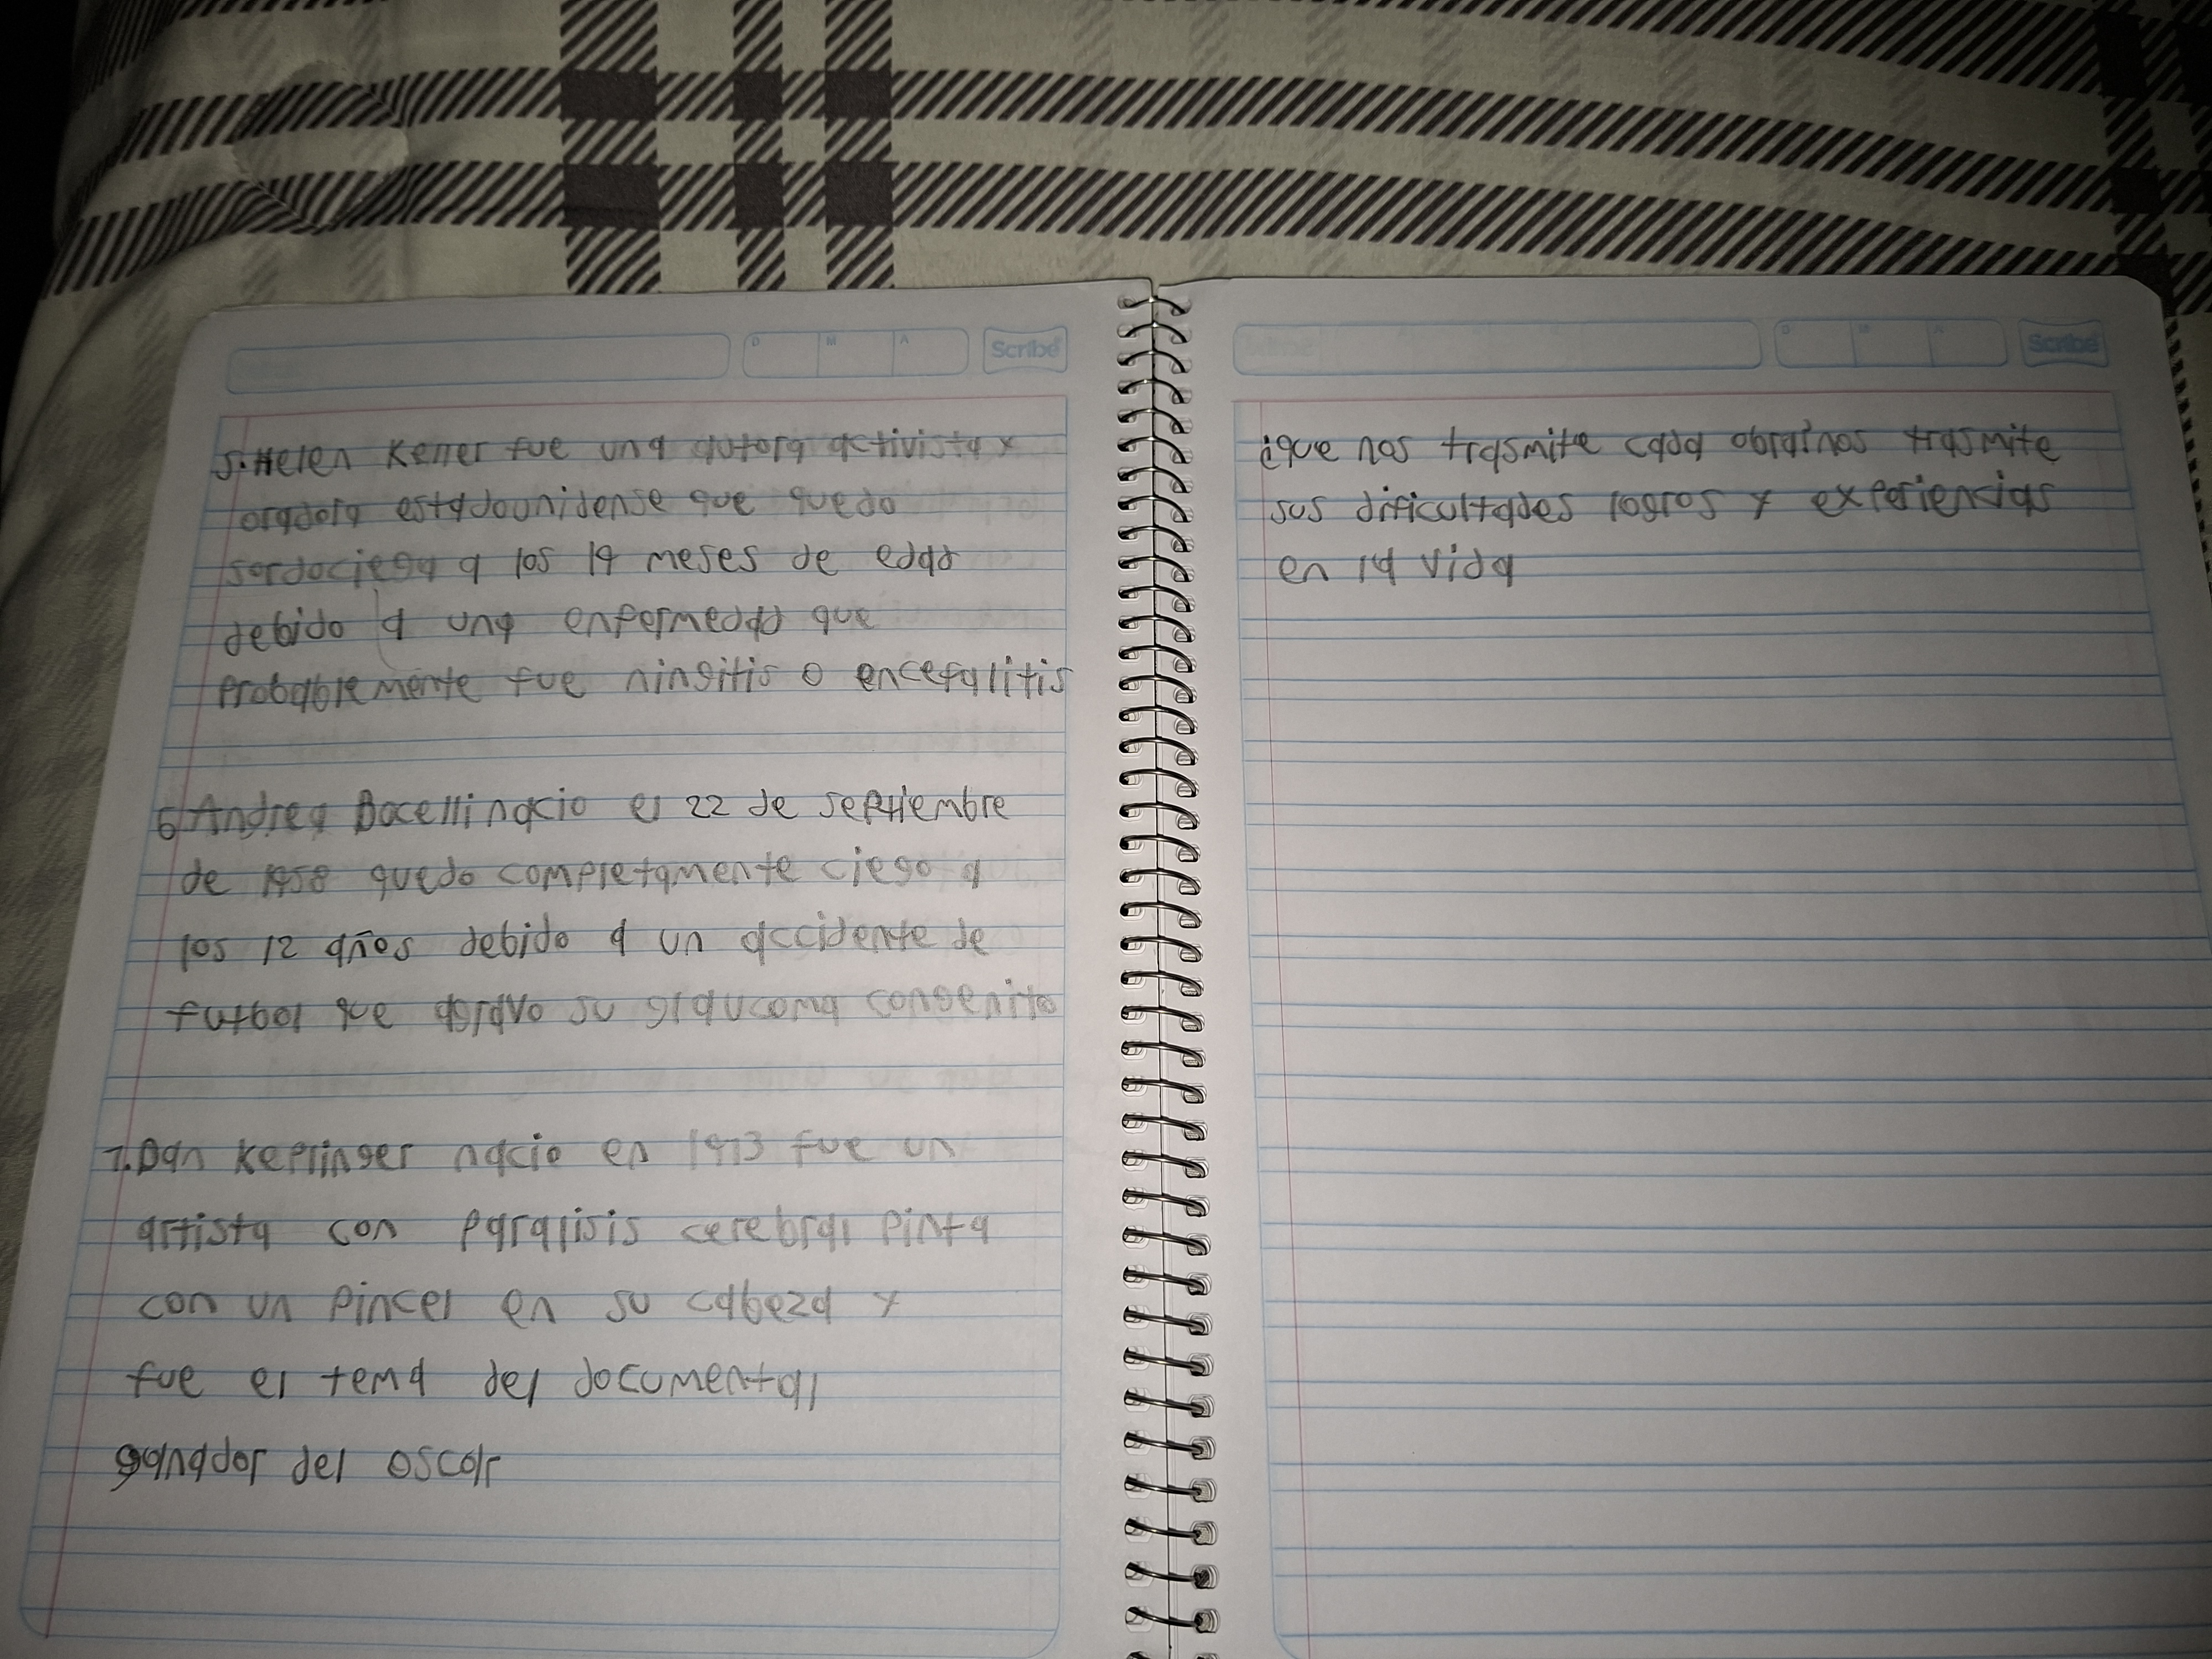 D M A Scribe
5. Helen Keller fue una autora activista y
oradora estadounidense que quedo
sordociega a los 19 meses de edad
debido a una enfermedad que
probablemente fue ningitis o encefalitis
6 Andrea Bocelli nacio el 22 de septiembre
de 1958 quedo completamente ciego a
los 12 años debido a un accidente de
futbol que agravo su glaucoma congenito
7. Dan Keplinger nacio en 1973 fue un
artista con paralisis cerebral pinta
con un pincel en su cabeza y
fue el tema del documental
ganador del oscar
D M A Scribe
¿que nos trasmite cada obra? nos trasmite
sus dificultades logros y experiencias
en la vida